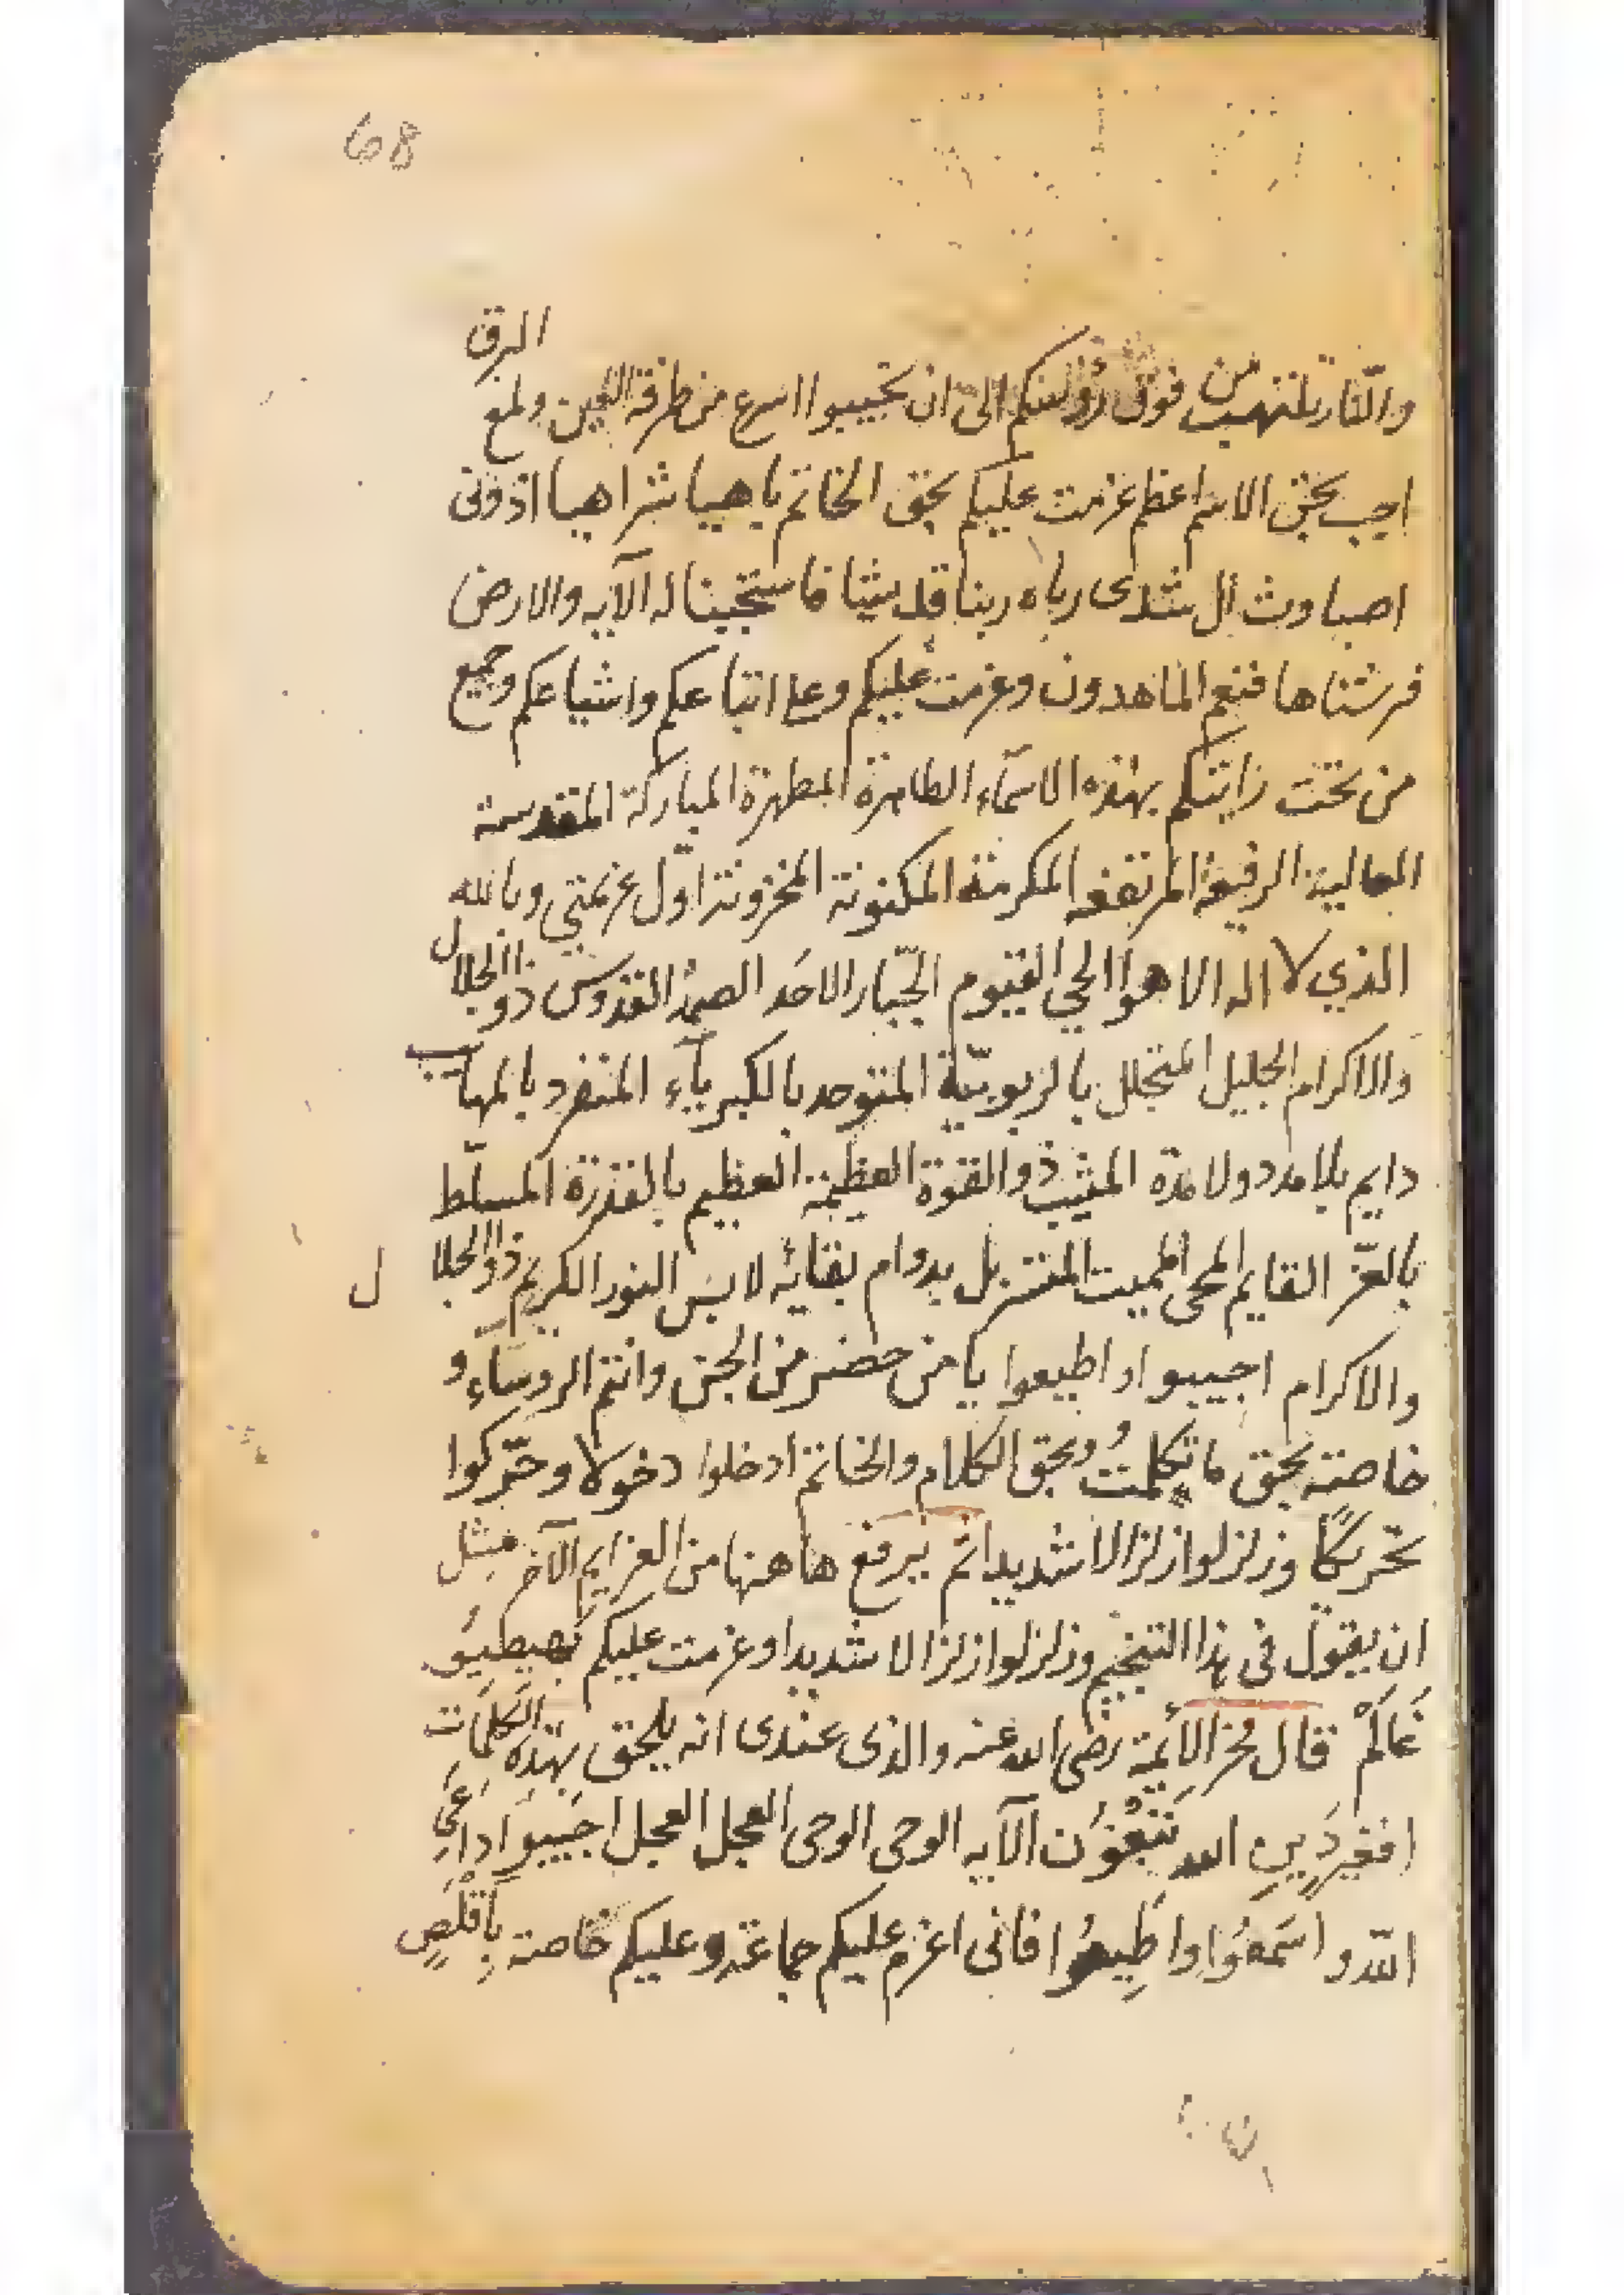 68
والنار تلتهب من فوق رؤسكم الى ان تجيبوا اسرع من طرفة العين ولمع البرق
اجب بحق الاسم اعظم عزمت عليكم بحق الخاتم يا هيا شراهيا اذونى
اصباوث ال شدى رباه ربنا فاستجبنا له الآيه والارض
فرشناها فنعم الماهدون وعزمت عليكم وعلى اتباعكم واشياعكم وجميع
من تحت رايتكم بهذه الاسمآء الطاهرة المطهرة المباركة المقدسة
العالية الرفيعة المرتفعه المكرمة المكنونة المخزونة اول عزيمتي وبالله
الذي لا اله الا هو الحي القيوم الجّبار الاحَد الصمد القدوس ذو الجلال
والاكرام الجليل المتجلل بالربوبيّة المتوحد بالكبريآء المتفرد بالمهاب
دايم بلا مدد ولا مدة المثيب ذو القوة العظيمة العظيم بالقدرة المسلّط
بالعّز القايم المحى المميت المتسربل بدوام بقائه لابس النور الكريم ذو الجلال
والاكرام اجيبوا واطيعوا يا من حضر من الجن وانتم الروسآء و
خاصة بحق ما تكلمتُ وبحق الكلام والخاتم ادخلوا دخولا وحّركوا
تحريكًا وزلزلوا زلزالا شديدا ثم يرفع هاهنا من العزايم الآخر مثل
ان يقول فى هذا التنجيم وزلزلوا زلزالا شديدا وعزمت عليكم
قال فخر الائمة رضى الله عنه والذى عندى انه يلحق بهذه الكلمات
افغير دين الله تبغون الآيه الوحى الوحى العجل العجل اجيبوا داعي
اللّه و اسمعُوا واطيعُوا فانى اعزم عليكم جماعة وعليكم خاصة